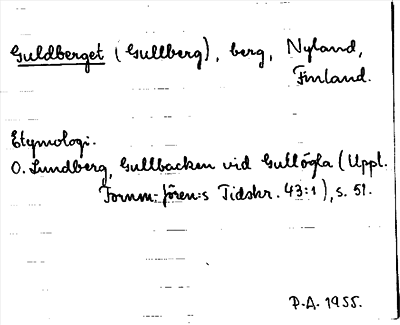 Guldberget (Gullberg), berg, Nyland,
Finland.
Etymologi.
O. Lundberg, Gullbacken vid Gullögla (Uppl.
Fornm:fören:s Tidskr. 43:1), s. 51.
P.A. 1955.